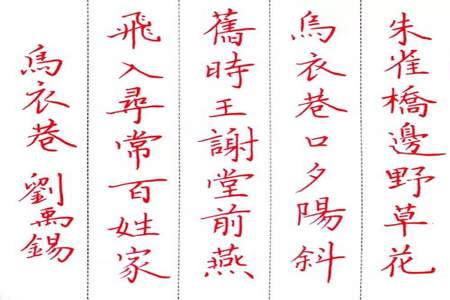 朱雀橋邊野草花
烏衣巷口夕陽斜
舊時王謝堂前燕
飛入尋常百姓家
烏衣巷 劉禹錫